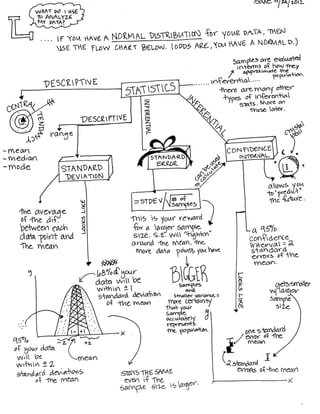 9/24/2012
WHAT DO I USE
TO ANALYZE
MY DATA?
.... IF YOU HAVE A NORMAL DISTRIBUTION for YOUR DATA, THEN
USE THE FLOW CHART BELOW. (ODDS ARE, YOU HAVE A NORMAL D.)
Samples are evaluated
in terms of how they
approximate the
population
inferential.....
there are many other
types of inferential
stats. More on
those later.
DESCRIPTIVE
STATISTICS
CENTRAL
TENDENCY
range
DESCRIPTIVE
INFERENTIAL
INFERENTIAL
-mean
-median
-mode
STANDARD
DEVIATION
STANDARD
ERROR
can be used
to calculate
CONFIDENCE
INTERVAL
crystal
ball
= STDEV/√# of samples
allows you
to "predict"
the future.
the average
of the dif.
between each
data point and
The mean
LOOKS LIKE
This is your reward
for a larger sample
size. S.E. will "tighten"
around the mean, the
more data points you have
a 95%
Confidence
Interval = 2
standard
errors of the
mean.
68% of your
data will be
within ± 1
standard deviation
of the mean
BIGGER
samples
and
smaller variance =
more certainty
that your
sample
accurately
represents
the population.
LOOKS LIKE
gets smaller
w/ larger
sample
size
y
x
-2
±2
95%
of your data
will be
within ± 2
standard deviations
of the mean
mean
STAYS THE SAME
even if The
sample size is larger.
one standard
error of the
mean
x
2 standard
errors of the mean